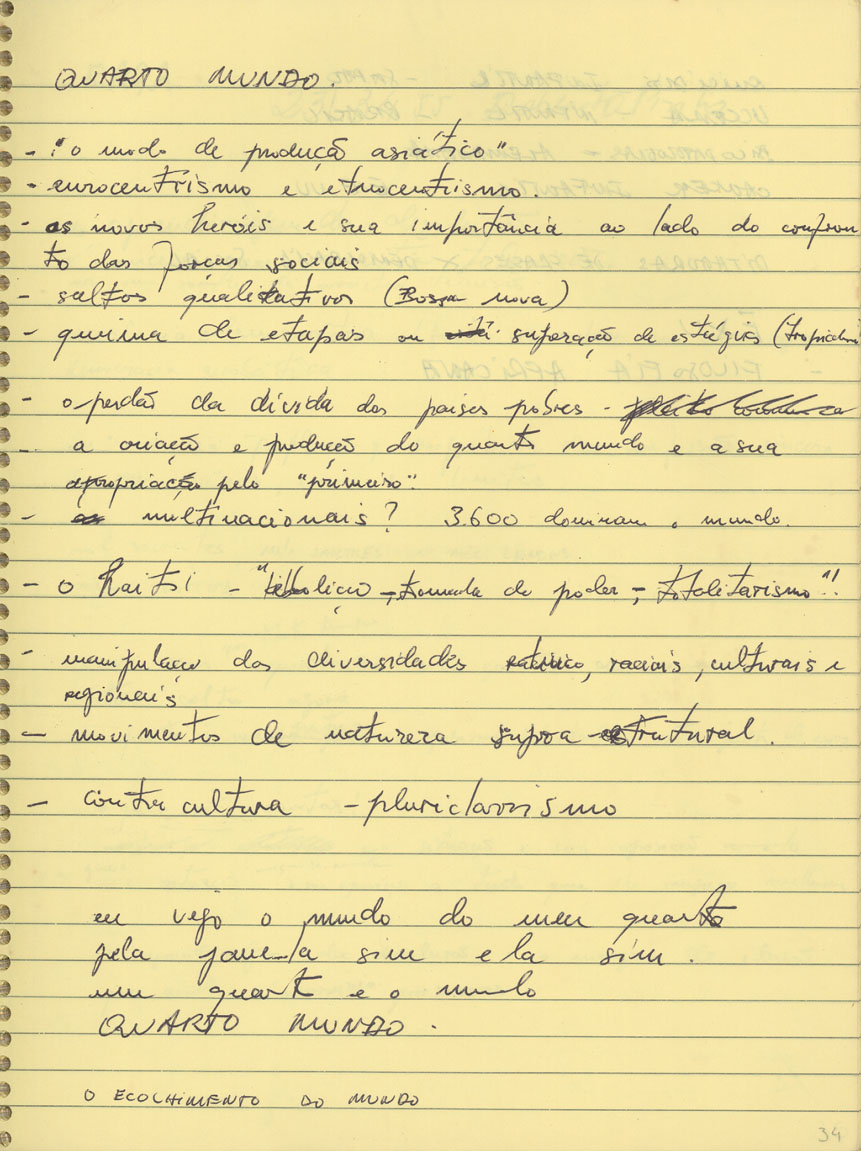 QUARTO MUNDO.
- "o modo de produção asiático"
- eurocentrismo e etnocentrismo.
- os novos heróis e sua importância ao lado do confron
to das forças sociais
- saltos qualitativos (Bossa nova)
- queima de etapas ou superação de estágios (tropicalismo
- o perdão da dívida dos países pobres -
- a criação e produção do quarto mundo e a sua
apropriação pelo "primeiro".
- multinacionais? 3.600 dominam o mundo.
- o Haiti - " - tomada do poder - totalitarismo"!
- manipulação das diversidades , raciais, culturais e
regionais
- movimentos de natureza supra-estrutural.
- contra cultura - pluriclassismo
eu vejo o mundo do meu quarto
pela janela sim ela sim.
um quarto e o mundo
QUARTO MUNDO.
O ECOLHIMENTO DO MUNDO
34